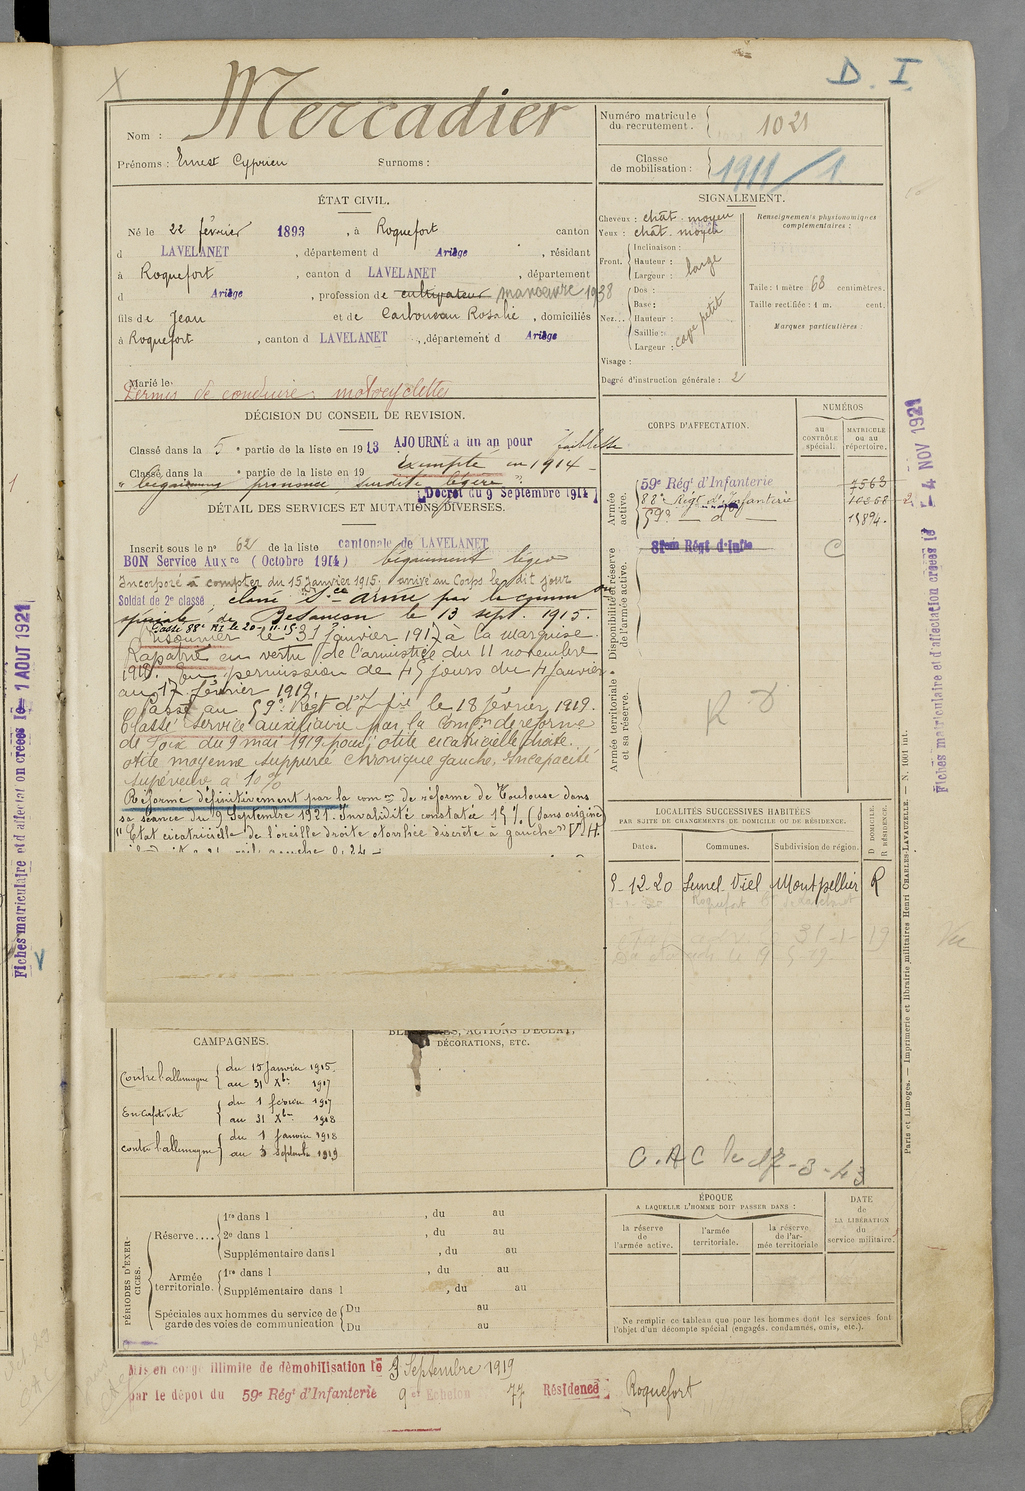 D. I.
Mercadier
Nom :
Prénoms : Ernest Cyprien Surnoms :
Numéro matricule du recrutement. 1021
Classe de mobilisation : 1911/1
ÉTAT CIVIL.
Né le 22 février 1893, à Roquefort canton
d LAVELANET, département d Ariège, résidant
à Roquefort, canton d LAVELANET, département
d Ariège, profession de cultivateur manoeuvre 1938
fils de Jean et de Carbonneau Rosalie, domiciliés
à Roquefort, canton d LAVELANET, département d Ariège
Marié le
Permis de conduire : motocyclettes
SIGNALEMENT.
Cheveux : chât. moyen
Yeux : chât. moyen
Front. Inclinaison :
Hauteur :
Largeur : large
Nez... Dos :
Base :
Hauteur :
Saillie :
Largeur : cave petit
Visage :
Degré d'instruction générale : 2
Renseignements physionomiques complémentaires :
Taille : 1 mètre 68 centimètres.
Taille rectifiée : 1 m. cent.
Marques particulières :
DÉCISION DU CONSEIL DE REVISION.
Classé dans la 5e partie de la liste en 1913 AJOURNÉ à un an pour faiblesse
Classé dans la e partie de la liste en 19 Exempté en 1914 -
"bégaiement prononcé surdité légère".
Décret du 9 Septembre 1914
DÉTAIL DES SERVICES ET MUTATIONS DIVERSES.
Inscrit sous le n° 62 de la liste cantonale de LAVELANET
BON Service Auxre (Octobre 1914) bégaiement léger
Incorporé à compter du 15 Janvier 1915. arrivé au Corps le dit jour
Soldat de 2e classe, classé Sce armé par la comm on
spéciale de Besançon le 13 sept. 1915.
Passé 88e RI le 20-11-15
Prisonnier le 31 Janvier 1917 à la Marquise.
Rapatrié en vertu de l'armistice du 11 novembre
1918. En permission de 45 jours du 4 janvier
au 17 février 1919.
Passé au 59e Régt d'Infie le 18 février 1919.
Classé service auxiliaire par la Comon de réforme
de Foix du 9 mai 1919 pour otite cicatricielle droite.
otite moyenne suppurée chronique gauche. Incapacité
supérieure à 10%
Réformé définitivement par la comon de réforme de Toulouse dans
sa séance du 9 Septembre 1921. Invalidité constatée 15% (dans origine)
"Etat cicatriciel de l'oreille droite otorrhée discrète à gauche" V.H.
CORPS D'AFFECTATION.
NUMÉROS
au CONTRÔLE spécial.
MATRICULE ou au répertoire.
Armée active.
59e Régt d'Infanterie 7563
88e Régt d'Infanterie 10268
59e — d° — 15894.
Disponibilité et réserve de l'armée active.
81em Régt d'Infie C
Armée territoriale et sa réserve.
R D
LOCALITÉS SUCCESSIVES HABITÉES
PAR SUITE DE CHANGEMENTS DE DOMICILE OU DE RÉSIDENCE.
Dates. Communes. Subdivision de région. D DOMICILE. R RÉSIDENCE.
9-12-20 Lunel-Viel Montpellier R
C.A C le 17-3-43
CAMPAGNES.
Contre l'allemagne du 15 Janvier 1915.
au 31 Xbre 1917
En captivité du 1 février 1917
au 31 Xbre 1918
contre l'allemagne du 1 Janvier 1918
au 3 Septembre 1919
BLESSURES, ACTIONS D'ÉCLAT,
DÉCORATIONS, ETC.
PÉRIODES D'EXERCICES.
Réserve.... 1re dans l , du au
2e dans l , du au
Supplémentaire dans l , du au
Armée territoriale. 1re dans l , du au
Supplémentaire dans l , du au
Spéciales aux hommes du service de garde des voies de communication Du au
Du au
ÉPOQUE
A LAQUELLE L'HOMME DOIT PASSER DANS :
la réserve de l'armée active.
l'armée territoriale.
la réserve de l'armée territoriale
DATE de LA LIBÉRATION du service militaire.
Ne remplir ce tableau que pour les hommes dont les services font
l'objet d'un décompte spécial (engagés, condamnés, omis, etc.).
Mis en congé illimité de démobilisation le 3 Septembre 1919
par le dépôt du 59e Régt d'Infanterie 9e Echelon 77 Résidence Roquefort
Fiches matriculaire et d'affectation créées le - 4 NOV 1921
Fiches matriculaire et d'affectation créées le - 1 AOUT 1921
Paris et Limoges. — Imprimerie et librairie militaires Henri CHARLES-LAVAUZELLE. — N. 1001 int.
Vu